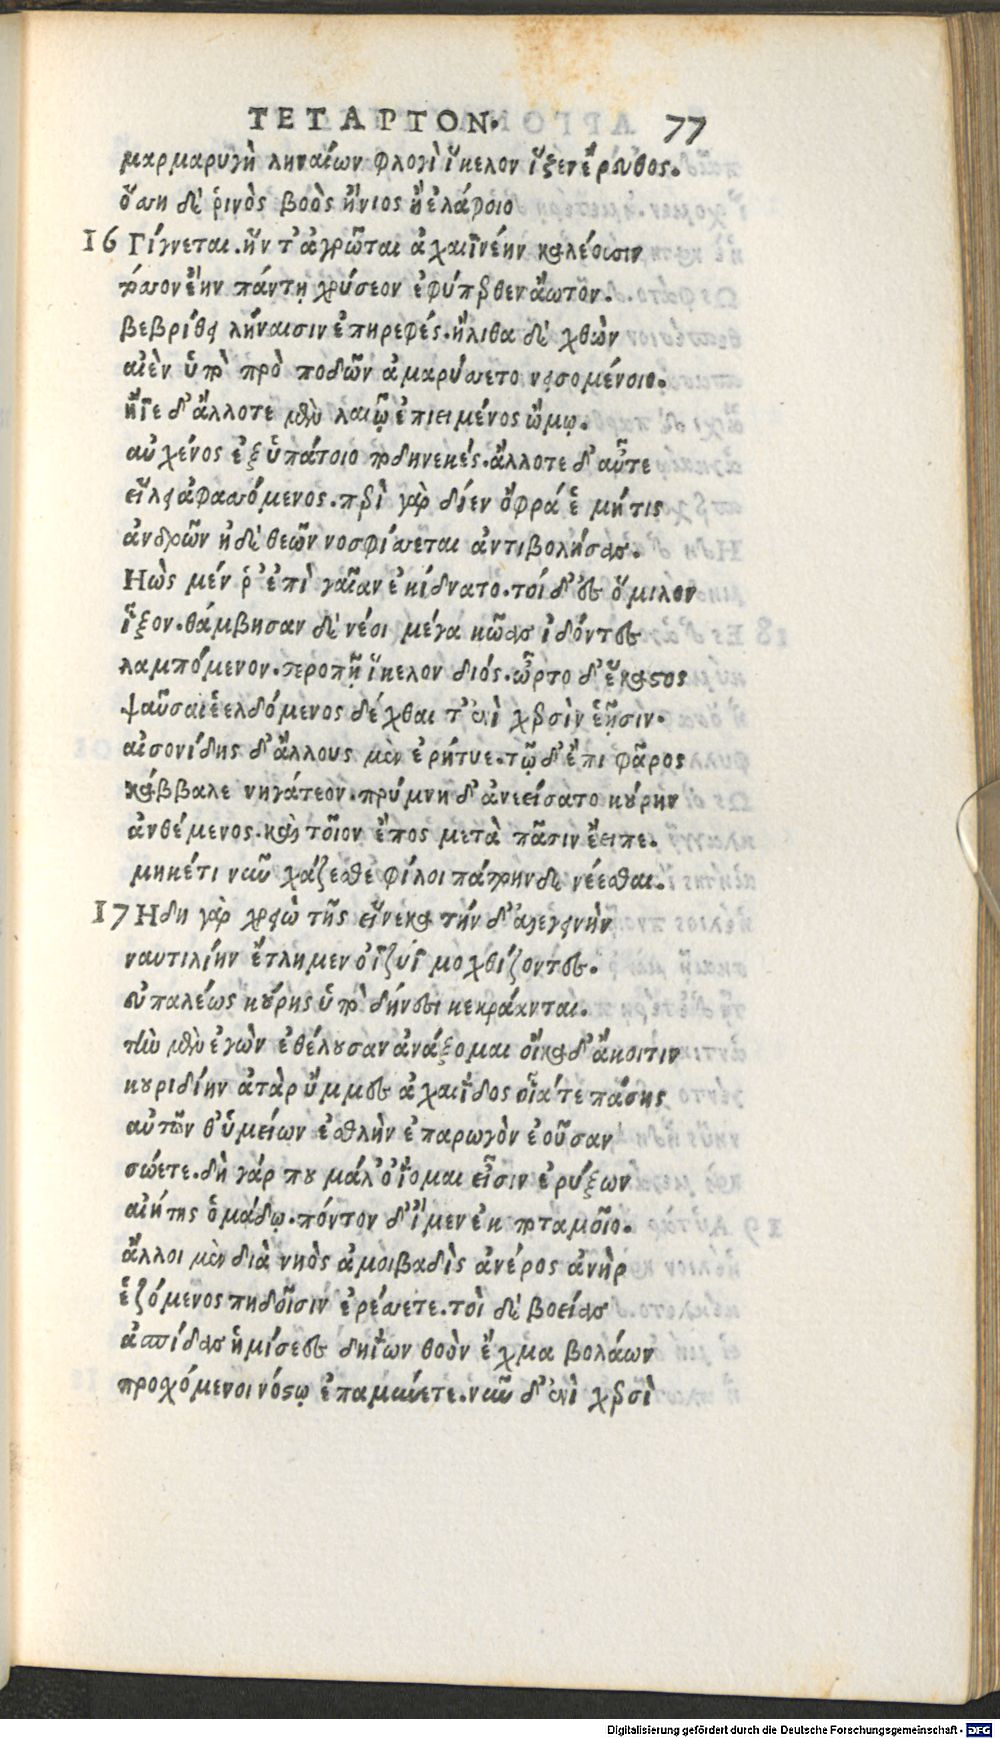 ΤΕΤΑΡΤΟΝ. 77
μαρμαρυγῇ ληναίων φλογὶ ἴκελον ἵξεν ἔρευθος.
ὅση δὲ ῥινὸς βοὸς ἤνιος ἢ ἐλάφοιο
16 Γίγνεται. ἥν τ' ἀγρῶται ἀχαιϊνέην καλέουσιν
τόσσον ἔην πάντῃ χρύσεον ἐφύπερθεν ἄωτον.
βεβρίθει λήνεσσιν ἐπηρεφές. ἤλιθα δὲ χθὼν
αἰὲν ὑπὸ πρὸ ποδῶν ἀμαρύσσετο νεισομένοιο.
ἤϊε δ' ἄλλοτε μὲν λαιῷ ἐπιειμένος ὤμῳ.
αὐχένος ἐξ ὑπάτοιο ποδηνεκές. ἄλλοτε δ' αὖτε
εἴλει ἀφασσόμενος. περὶ γὰρ δίεν ὄφρά ἑ μήτις
ἀνδρῶν ἠδὲ θεῶν νοσφίσσεται ἀντιβολήσας.
Ηὼς μέν ῥ' ἐπὶ γαῖαν ἐκίδνατο. τοί δ' ἐς ὅμιλον
ἷξον. θάμβησαν δὲ νέοι μέγα κῶας ἰδόντες
λαμπόμενον. στεροπῇ ἴκελον διός. ὦρτο δ' ἕκαστος
ψαῦσαι ἐελδόμενος δέχθαι τ' ἐνὶ χερσὶν ἑῇσιν.
αἰσονίδης δ' ἄλλους μὲν ἐρήτυε. τῷ δ' ἔπι φᾶρος
κάββαλε νηγάτεον. πρύμνῃ δ' ἀνεείσατο κούρην
ἀνθέμενος. καὶ τοῖον ἔπος μετὰ πᾶσιν ἔειπε.
μηκέτι νῦν χάζεσθε φίλοι πάτρην δὲ νέεσθαι.
17 Ηδη γὰρ χρειὼ τῆς εἵνεκα τήν δ' ἀλεγεινὴν
ναυτιλίην ἔτλημεν ὀϊζυῖ μοχθίζοντες.
εὐπαλέως κούρης ὑπὸ δήνεσι κεκράανται.
τὴν μὲν ἐγὼν ἐθέλουσαν ἀνάξομαι οἴκαδ' ἄκοιτιν
κουριδίην ἀτὰρ ὔμμες ἀχαιΐδος οἷά τε πάσης
αὐτῶν θ' ὑμείων ἐσθλὴν ἐπαρωγὸν ἐοῦσαν
σώετε. δὴ γάρ που μάλ' ὀΐομαι εἶσιν ἐρύξων
αἰήτης ὁμάδῳ. πόντον δ' ἴμεν ἐκ ποταμοῖο.
ἄλλοι μὲν διὰ νηὸς ἀμοιβαδὶς ἀνέρος ἀνὴρ
ἑζόμενος πηδοῖσιν ἐρέσσετε. τοὶ δὲ βοείας
ἀσπίδας ἡμίσεες δηΐων θοὸν ἔχμα βολάων
προχόμενοι νόστῳ ἐπαμύνετε. νῦν δ' ἐνὶ χερσὶ
Digitalisierung gefördert durch die Deutsche Forschungsgemeinschaft - DFG